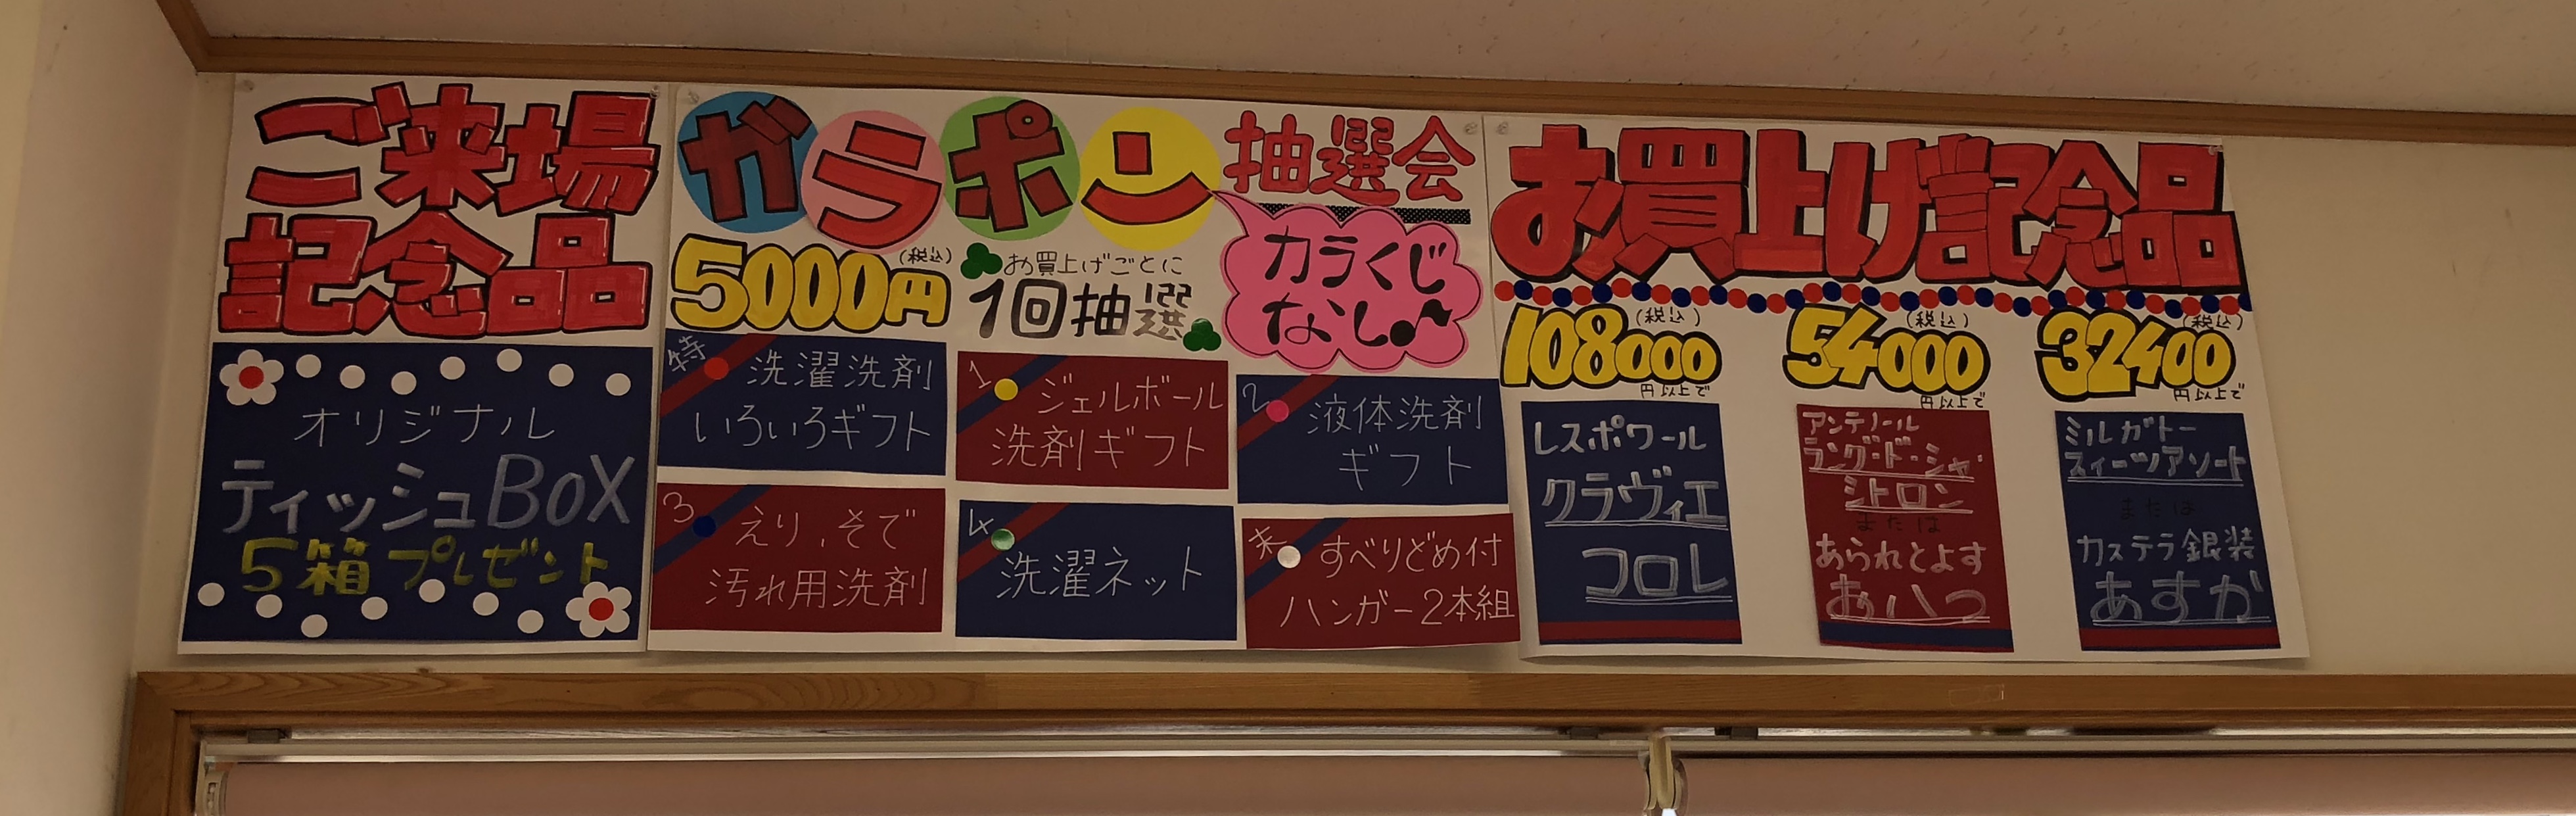 ご来場
記念品
オリジナル
ティッシュBOX
5箱プレゼント
ガラポン抽選会
5000円(税込)
お買上げごとに
1回抽選
カラくじ
なし♪
特
洗濯洗剤
いろいろギフト
1
ジェルボール
洗剤ギフト
2
液体洗剤
ギフト
3
えり、そで
汚れ用洗剤
4
洗濯ネット
末
すべりどめ付
ハンガー2本組
お買上げ記念品
108000(税込)
円以上で
レスポワール
クラヴィエ
コロレ
54000(税込)
円以上で
アンテノール
ラング・ド・シャ
シトロン
または
あられとよす
おハつ
32400(税込)
円以上で
ミルガトー
スィーツアソート
または
カステラ銀装
あすか